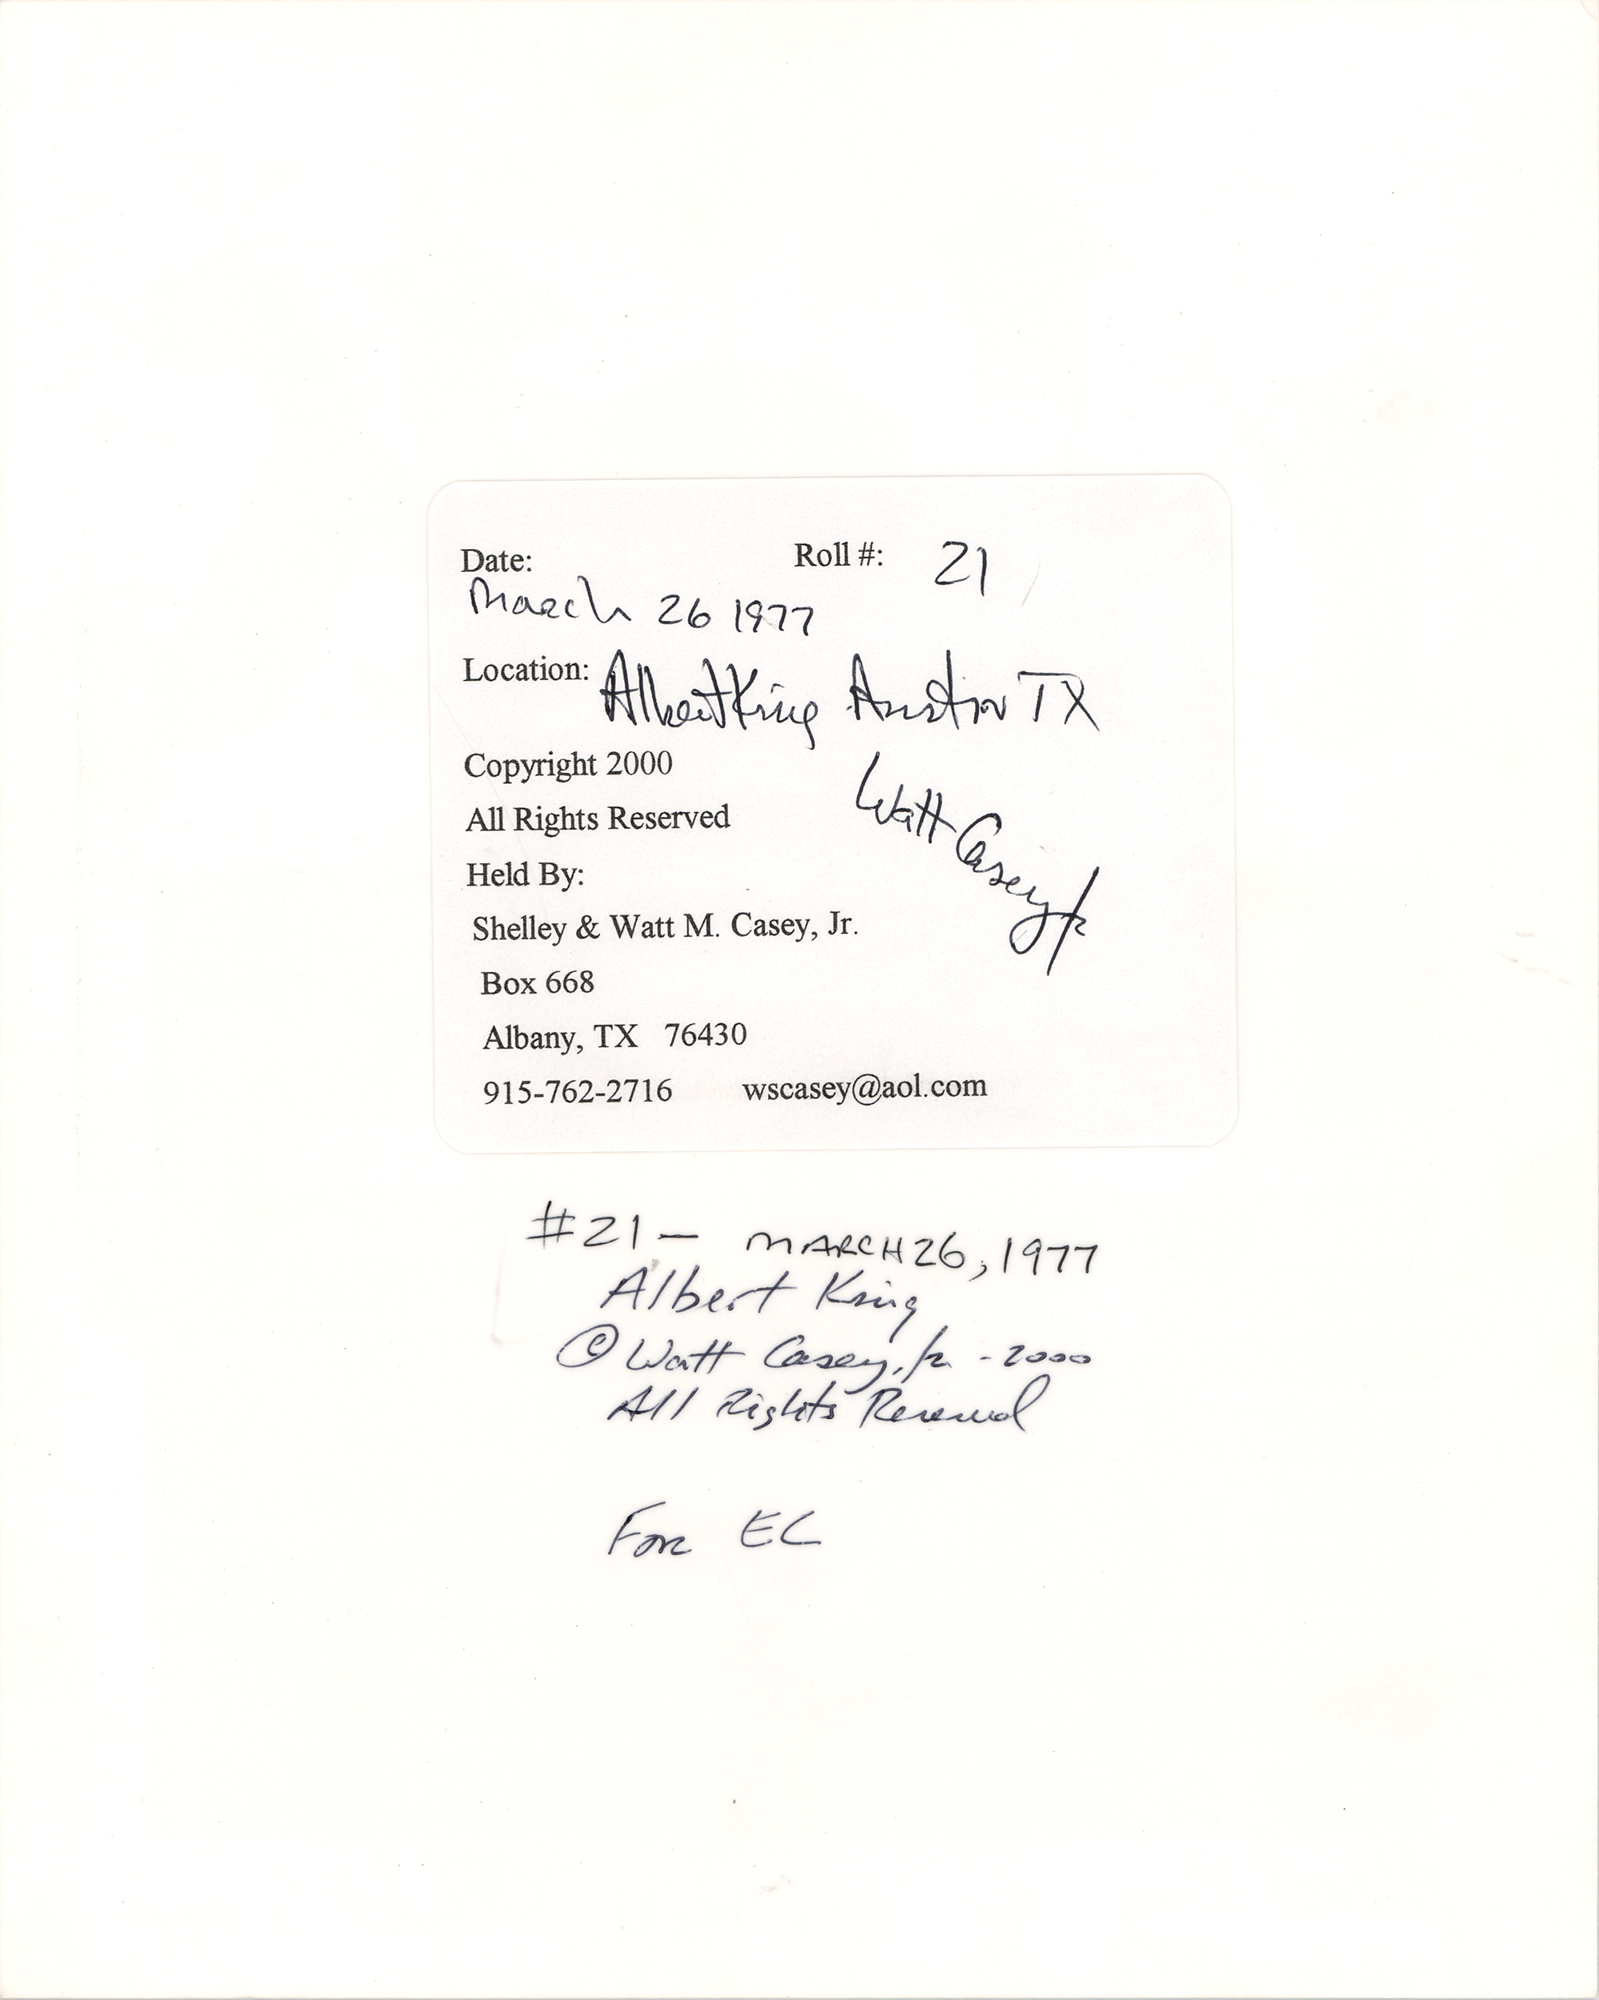 Date: Roll #: 21
March 26 1977
Location: Albert King Austin TX
Copyright 2000
Watt Casey Jr
All Rights Reserved
Held By:
Shelley & Watt M. Casey, Jr.
Box 668
Albany, TX 76430
915-762-2716 wscasey@aol.com
#21 — MARCH 26, 1977
Albert King
© Watt Casey, Jr. - 2000
All Rights Reserved
For EC